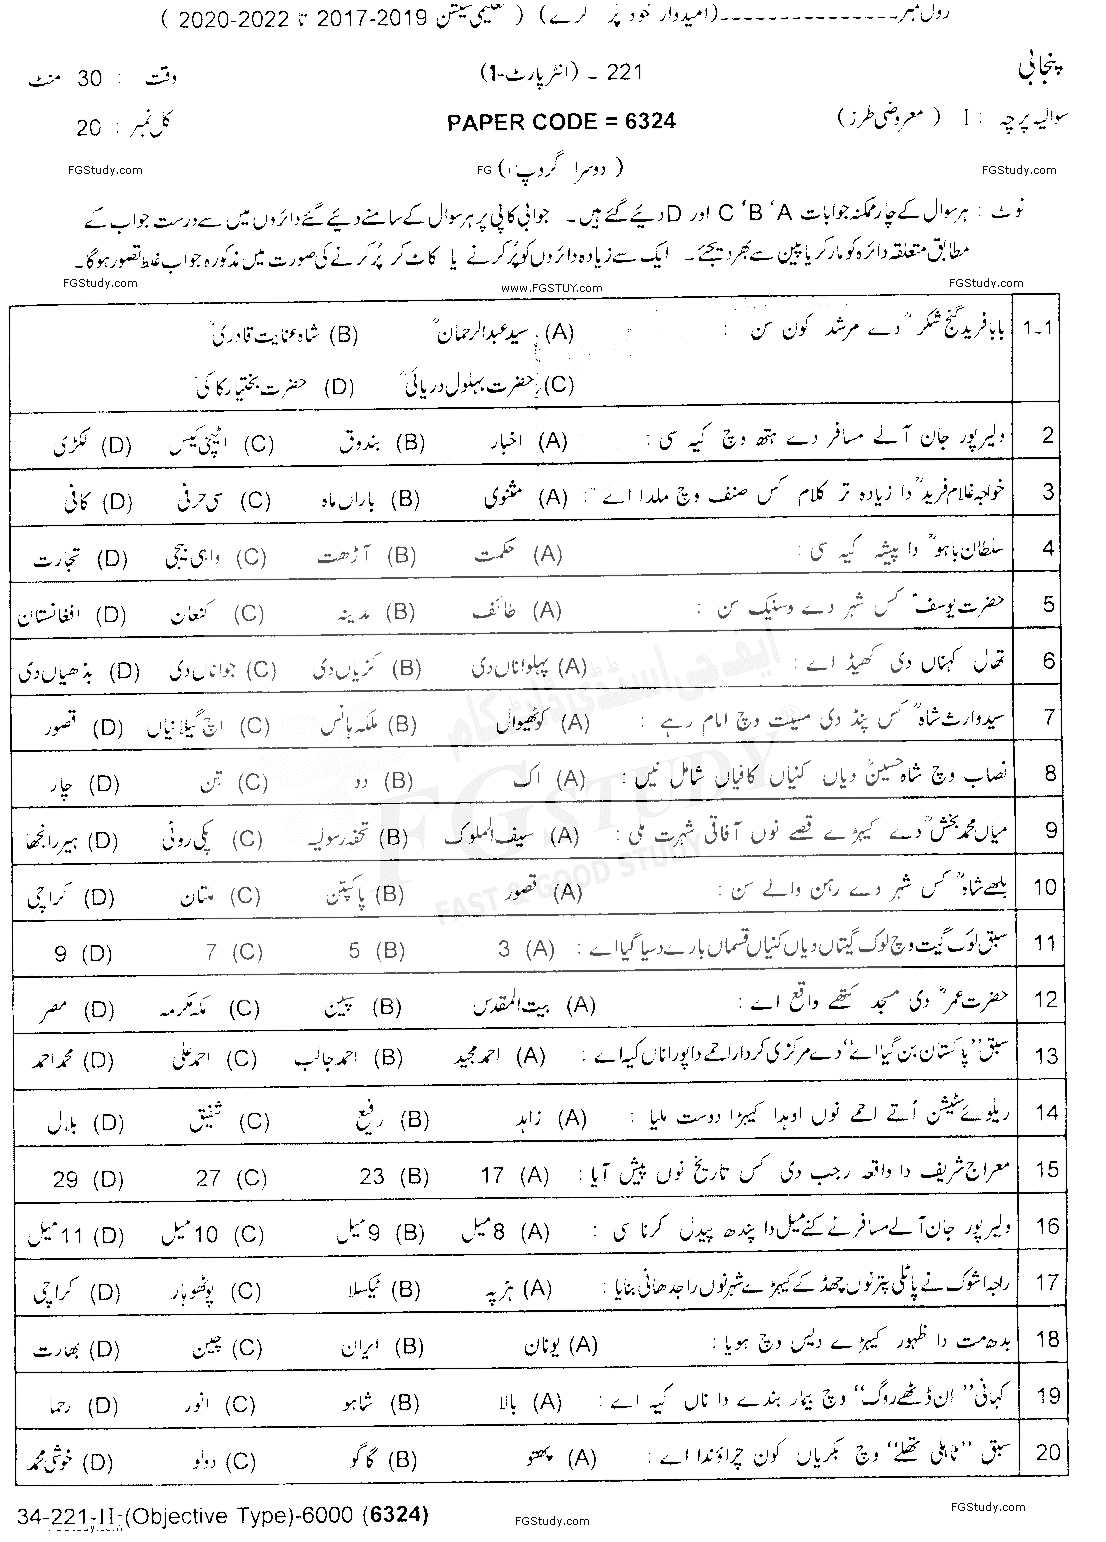 رول نمبر ---------------- (امیدوار خود پُر کرے) ( تعلیمی سیشن 2019-2017 تا 2022-2020 )
پنجابی 221 ۔ (انٹر پارٹ-1) وقت : 30 منٹ
سوالیہ پرچہ : I ( معروضی طرز ) PAPER CODE = 6324 کل نمبر : 20
FGStudy.com ( دوسرا گروپ ) FG FGStudy.com
نوٹ : ہر سوال کے چار ممکنہ جوابات A ‘ B ‘ C اور D دیئے گئے ہیں ۔ جوابی کاپی پر ہر سوال کے سامنے دیئے گئے دائروں میں سے درست جواب کے
مطابق متعلقہ دائرہ کو مارکر یا پین سے بھر دیجئے ۔ ایک سے زیادہ دائروں کو پُر کرنے یا کاٹ کر پُر کرنے کی صورت میں مذکورہ جواب غلط تصور ہوگا ۔
FGStudy.com www.FGSTUY.com FGStudy.com
1-1 بابا فرید گنج شکرؒ دے مرشد کون سن : (A) سید عبدالرحمانؒ (B) شاہ عنایت قادریؒ
(C) حضرت بہلول دریائیؒ (D) حضرت بختیار کاکیؒ
2 دلیر پور جان آلے مسافر دے ہتھ وچ کیہ سی : (A) اخبار (B) بندوق (C) اٹیچی کیس (D) لکڑی
3 خواجہ غلام فریدؒ دا زیادہ تر کلام کس صنف وچ ملدا اے : (A) مثنوی (B) باراں ماہ (C) سی حرفی (D) کافی
4 سلطان باہوؒ دا پیشہ کیہ سی : (A) حکمت (B) آڑھت (C) واہی بیجی (D) تجارت
5 حضرت یوسفؑ کس شہر دے وسنیک سن : (A) طائف (B) مدینہ (C) کنعان (D) افغانستان
6 تھال کہناں دی کھیڈ اے : (A) پہلواناں دی (B) کڑیاں دی (C) جواناں دی (D) بڈھیاں دی
7 سید وارث شاہؒ کس پنڈ دی مسیت وچ امام رہے : (A) کوٹھیوال (B) ملکہ ہانس (C) اچ گیلانیاں (D) قصور
8 نصاب وچ شاہ حسینؒ دیاں کنیاں کافیاں شامل نیں : (A) اک (B) دو (C) تن (D) چار
9 میاں محمد بخشؒ دے کیہڑے قصے نوں آفاقی شہرت ملی : (A) سیف الملوک (B) تحفہ رسولیہ (C) پکی روٹی (D) ہیر رانجھا
10 بلھے شاہؒ کس شہر دے رہن والے سن : (A) قصور (B) پاکپتن (C) ملتان (D) کراچی
11 سبق لوک گیت وچ لوک گیتاں دیاں کنیاں قسماں بارے دسیا گیا اے : (A) 3 (B) 5 (C) 7 (D) 9
12 حضرت عمرؓ دی مسجد کتھے واقع اے : (A) بیت المقدس (B) سپین (C) مکہ مکرمہ (D) مصر
13 سبق ”پاکستان بن گیا اے“ دے مرکزی کردار احمے دا پورا ناں کیہ اے : (A) احمد مجید (B) احمد جالب (C) احمد علی (D) محمد احمد
14 ریلوے سٹیشن اُتے احمے نوں اوہدا کیہڑا دوست ملیا : (A) زاہد (B) رفیع (C) شفیق (D) بلال
15 معراج شریف دا واقعہ رجب دی کس تاریخ نوں پیش آیا : (A) 17 (B) 23 (C) 27 (D) 29
16 دلیر پور جان آلے مسافر نے کنے میل دا پندھ پیدل کرنا سی : (A) 8 میل (B) 9 میل (C) 10 میل (D) 11 میل
17 راجہ اشوک نے پاٹلی پتر نوں چھڈ کے کیہڑے شہر نوں راجدھانی بنایا : (A) ہڑپہ (B) ٹیکسلا (C) پوٹھوہار (D) کراچی
18 بدھ مت دا ظہور کیہڑے دیس وچ ہویا : (A) یونان (B) ایران (C) چین (D) بھارت
19 کہانی ”ان ڈٹھے روگ“ وچ بیمار بندے دا ناں کیہ اے : (A) بالا (B) شاہو (C) انور (D) رحما
20 سبق ”ٹاہلی تھلے“ وچ بکریاں کون چراؤندا اے : (A) پھتو (B) گاگو (C) دولو (D) خوشی محمد
34-221-II-(Objective Type)-6000 (6324) FGStudy.com FGStudy.com
ایف جی اسٹڈی ڈاٹ کام
FGSTUDY
FAST & GOOD STUDY